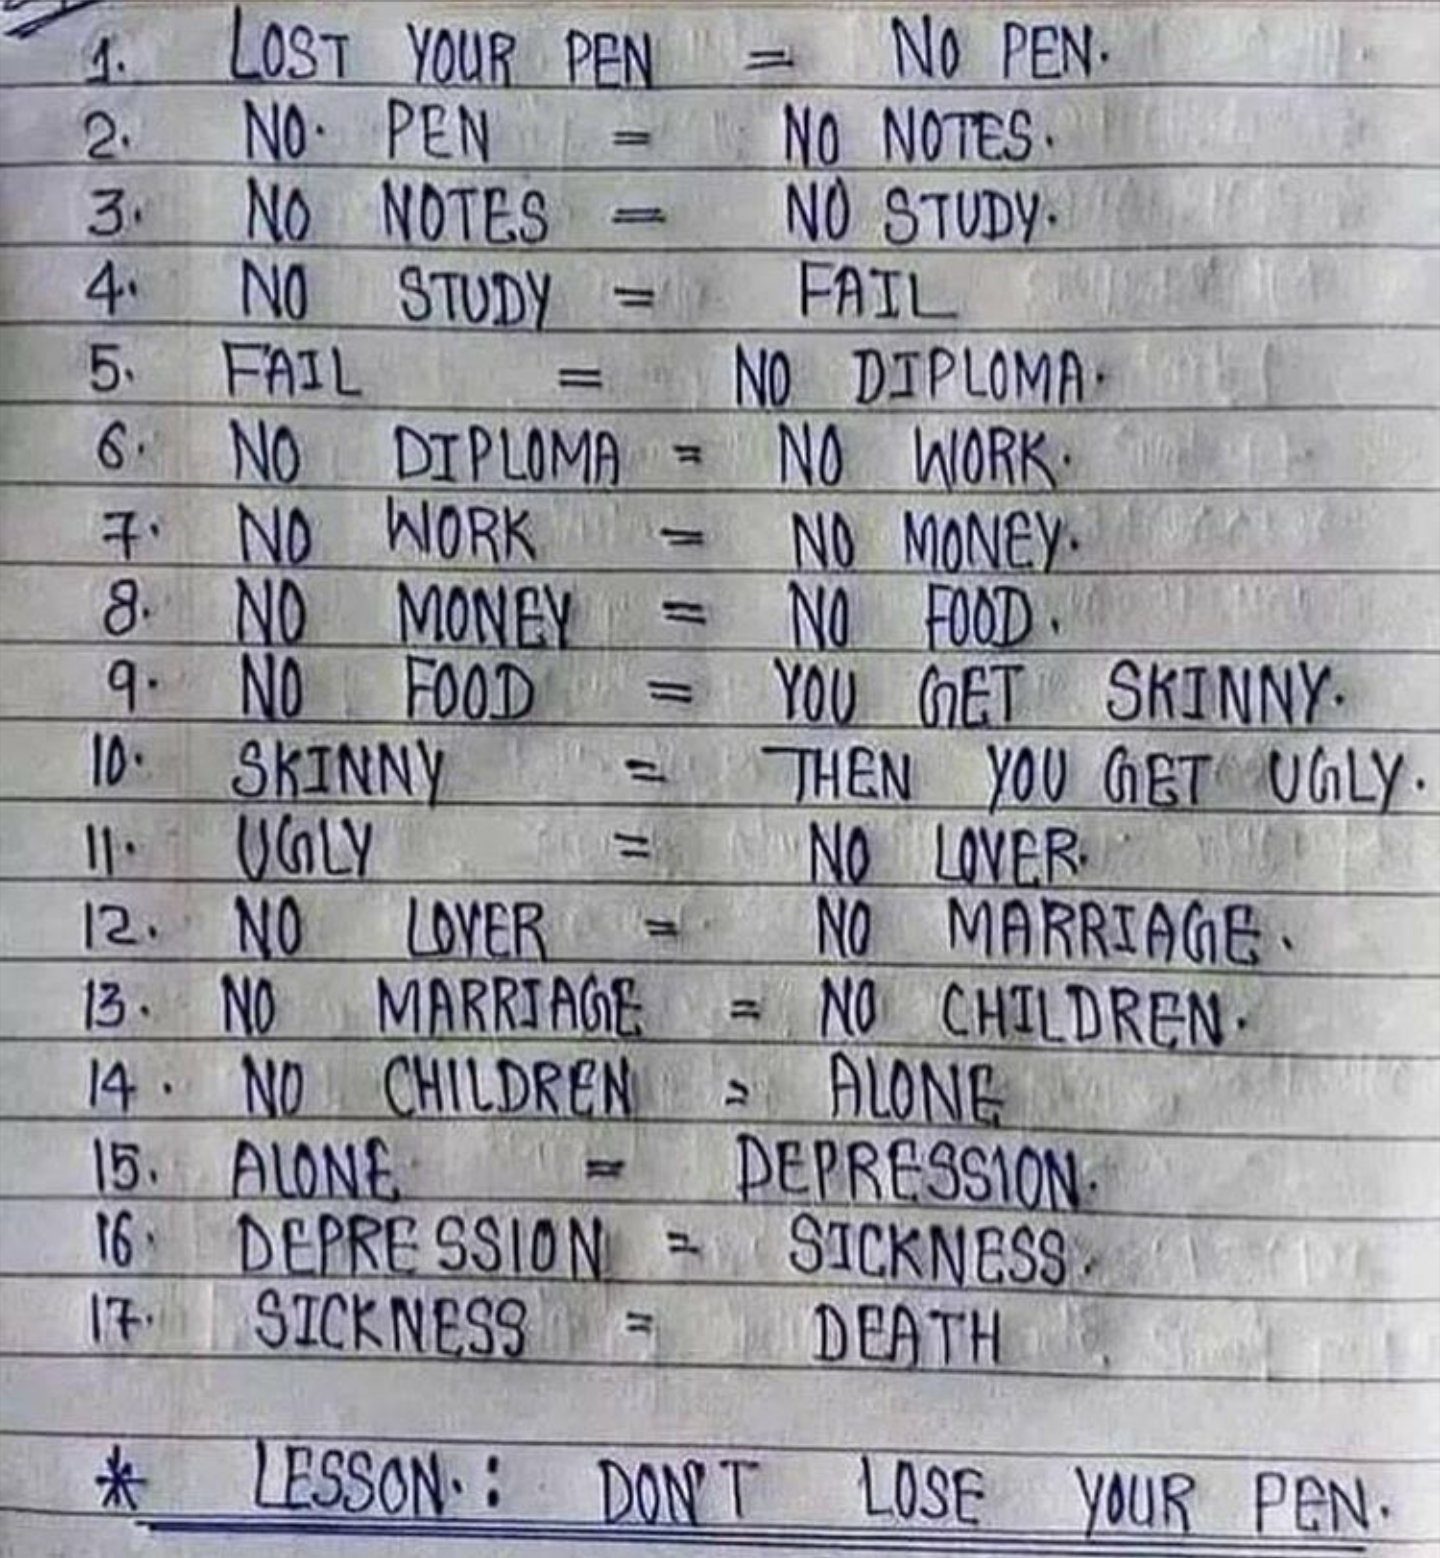 1. LOST YOUR PEN = NO PEN.
2. NO. PEN = NO NOTES.
3. NO NOTES = NO STUDY.
4. NO STUDY = FAIL
5. FAIL = NO DIPLOMA.
6. NO DIPLOMA = NO WORK.
7. NO WORK = NO MONEY.
8. NO MONEY = NO FOOD.
9. NO FOOD = YOU GET SKINNY.
10. SKINNY = THEN YOU GET UGLY.
11. UGLY = NO LOVER.
12. NO LOVER = NO MARRIAGE.
13. NO MARRIAGE = NO CHILDREN.
14. NO CHILDREN = ALONE
15. ALONE = DEPRESSION.
16. DEPRESSION = SICKNESS.
17. SICKNESS = DEATH
* LESSON.: DON'T LOSE YOUR PEN.